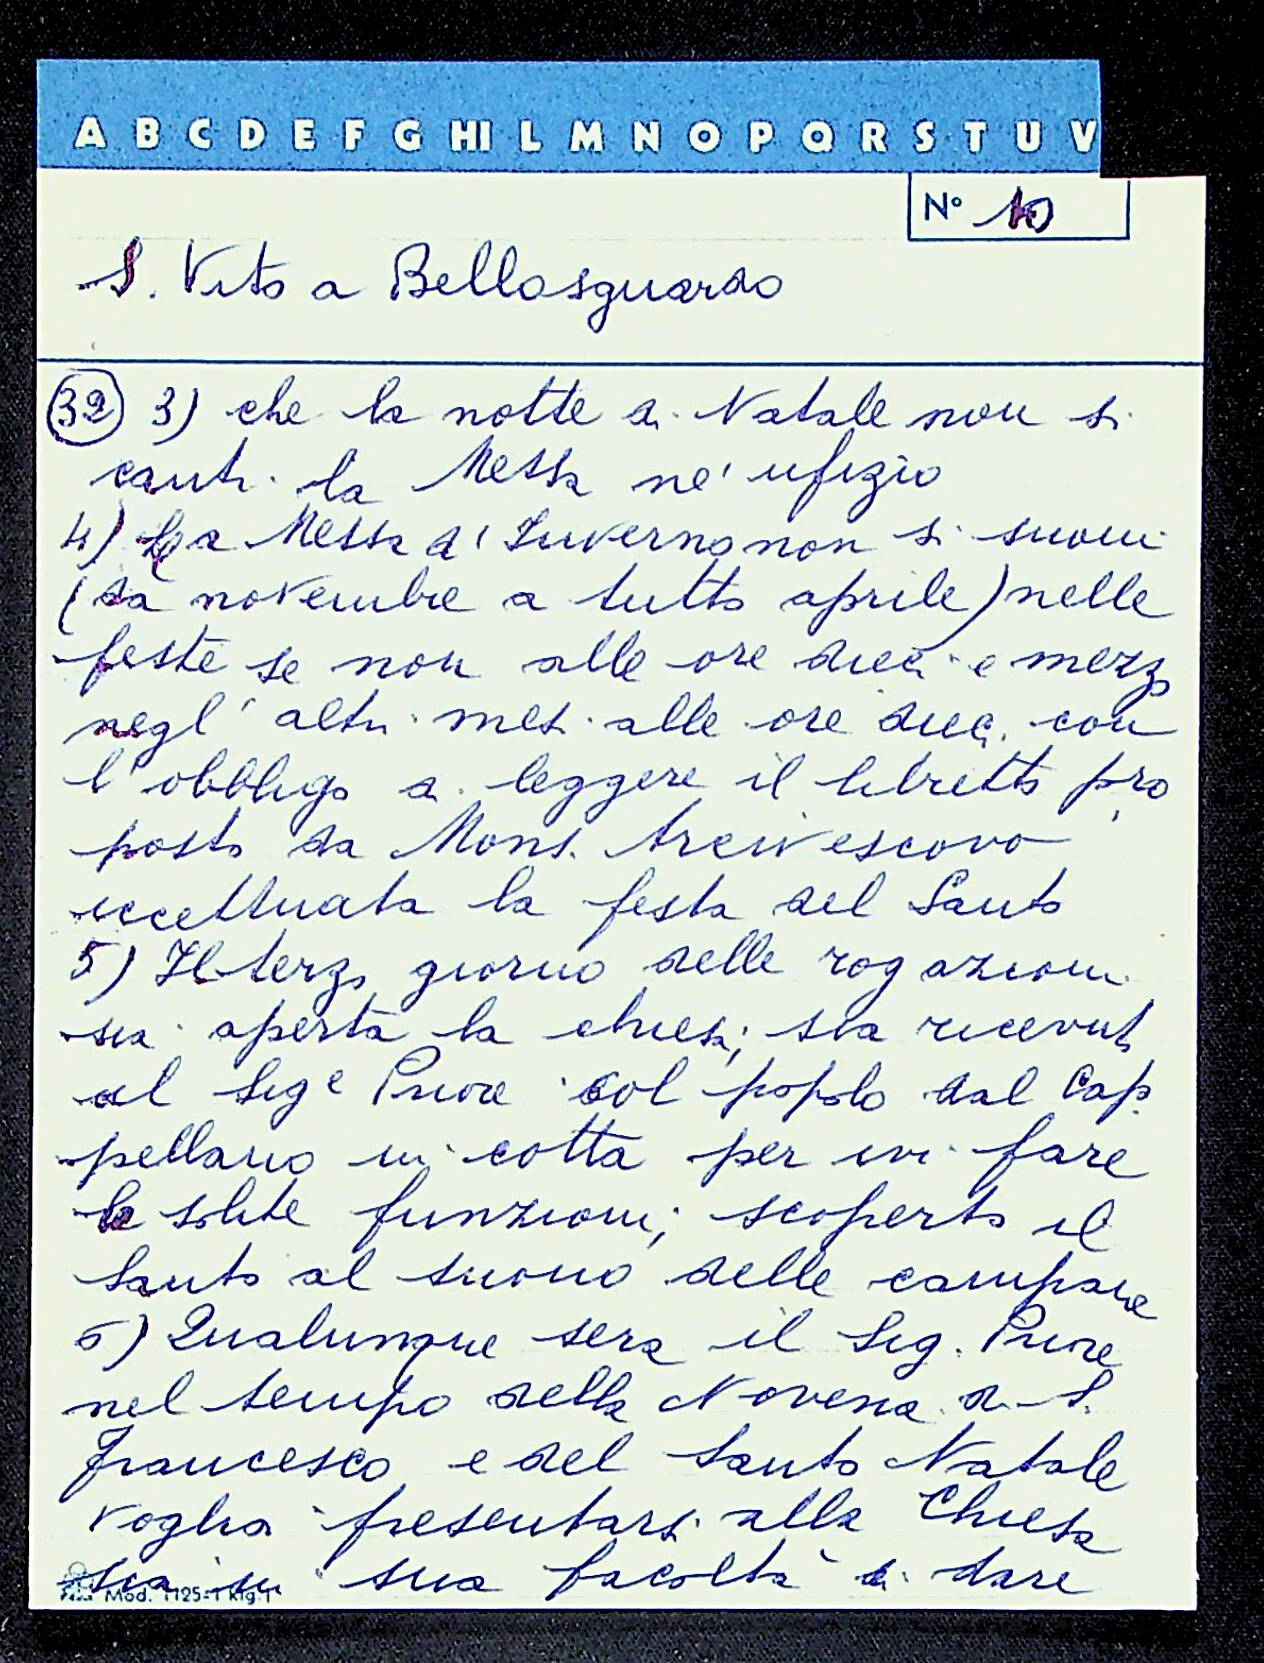 A B C D E F G HI L M N O P Q R S T U V
N° 10
S. Vito a Bellosguardo
32 3) che la notte di Natale non si
canti la Messa nè ufizio
4) La Messa d'Inverno non si suoni
(da novembre a tutto aprile) nelle
feste se non alle ore dieci e mezzo
negl' altri mesi alle ore dieci con
l'obbligo di leggere il libretto pro
posto da Mons. Arcivescovo
eccettuata la festa del Santo
5) Il terzo giorno delle rogazioni
sia aperta la chiesa; sia ricevuto
il Sig.e Priore col popolo dal Cap
pellano in cotta per ivi fare
le solite funzioni; scoperto il
Santo al suono delle campane
6) Qualunque sera il Sig. Priore
nel tempo della Novena di S.
Francesco e del Santo Natale
voglia presentarsi alla Chiesa
sia in sua facoltà di dare
Mod. 1125-1 Rig. 1